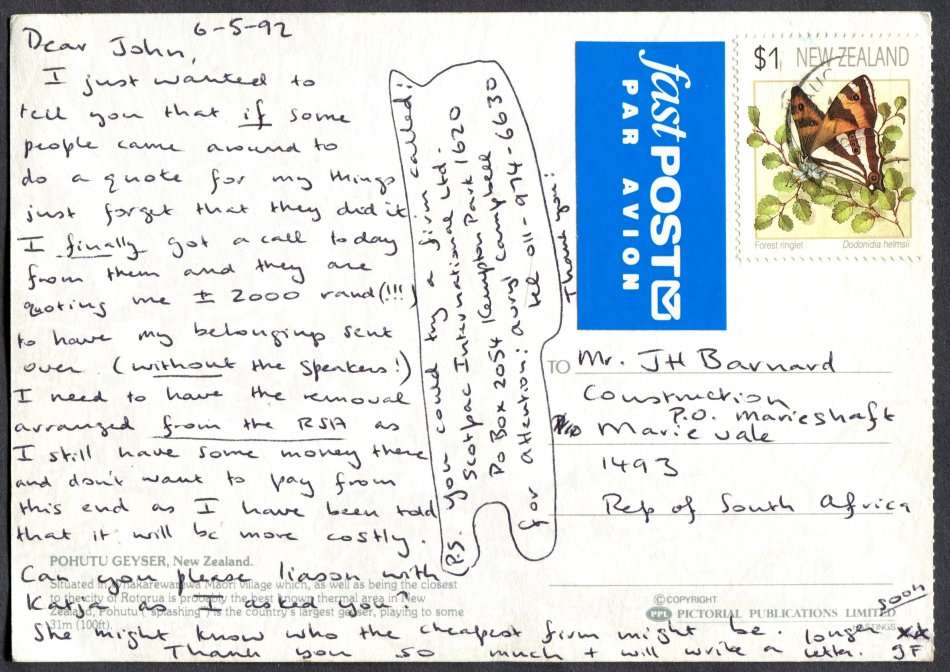 6-5-92
Dear John,
I just wanted to
tell you that if some
people came around to
do a quote for my things
just forget that they did it
I finally got a call today
from them and they are
quoting me ± 2000 rand (!!!)
to have my belongings sent
over (without the speakers!)
I need to have the removal
arranged from the RSA as
I still have some money there
and don't want to pay from
this end as I have been told
that it will be more costly.
Can you please liason with
Katja as I asked you?
She might know who the cheapest firm might be.
Thank you so much + will write a longer letter. soon
xx
JF
P.S. you could try a firm called:
Scotpac International Ltd.
PO Box 2054 Kempton Park 1620
attention: avryl campbell
for tel 011-974-6630
Thank you!
POHUTU GEYSER, New Zealand.
Situated in Whakarewarewa Maori village which, as well as being the closest
to the city of Rotorua is probably the best known thermal area in New
Zealand, Pohutu ("splashing") is the country's largest geyser, playing to some
31m (100ft).
fastPOST
PAR AVION
$1 NEW ZEALAND
Forest ringlet Dodonidia helmsii
TO Mr. JH Barnard
Construction
P.O. Marieshaft
Marievale
1493
Rep of South Africa
© COPYRIGHT
PPL PICTORIAL PUBLICATIONS LIMITED
HASTINGS